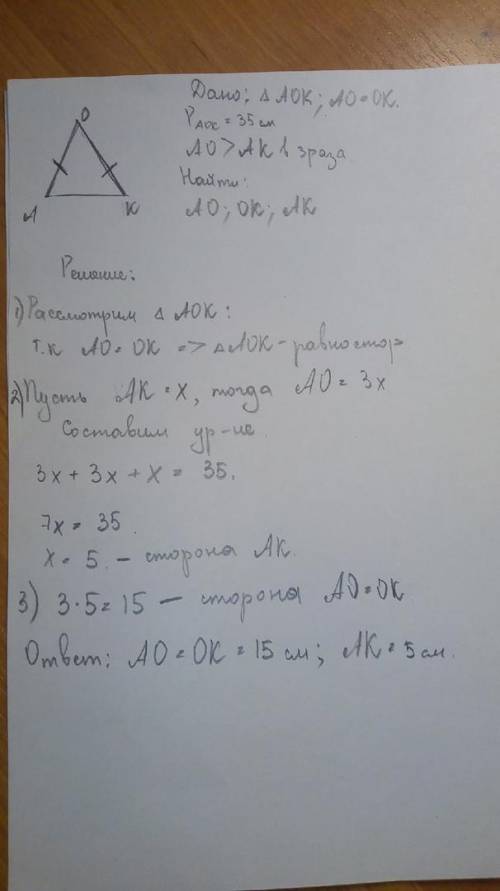 Дано: △ AOK; AO = OK.
PAOK = 35 см
AO > AK в 3 раза
Найти:
AO; OK; AK
O
A
K
Решение:
1) Рассмотрим △ AOK:
т.к AO = OK => △AOK - равностор
2) Пусть AK = x, тогда AO = 3x
Составим ур-ие.
3x + 3x + x = 35.
7x = 35.
x = 5. - сторона AK.
3) 3·5 = 15 - сторона AO = OK
Ответ: AO = OK = 15 см; AK = 5 см.